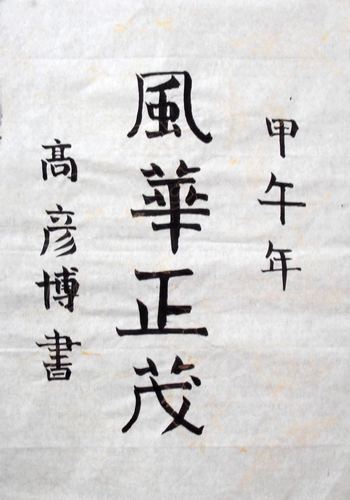 甲午年
風華正茂
高彦博書